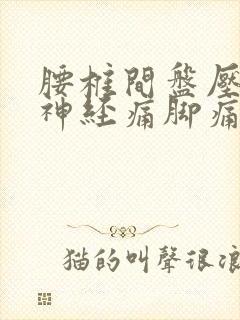 腰椎間盤壓
神經痛脚痛
猫的叫聲很浪